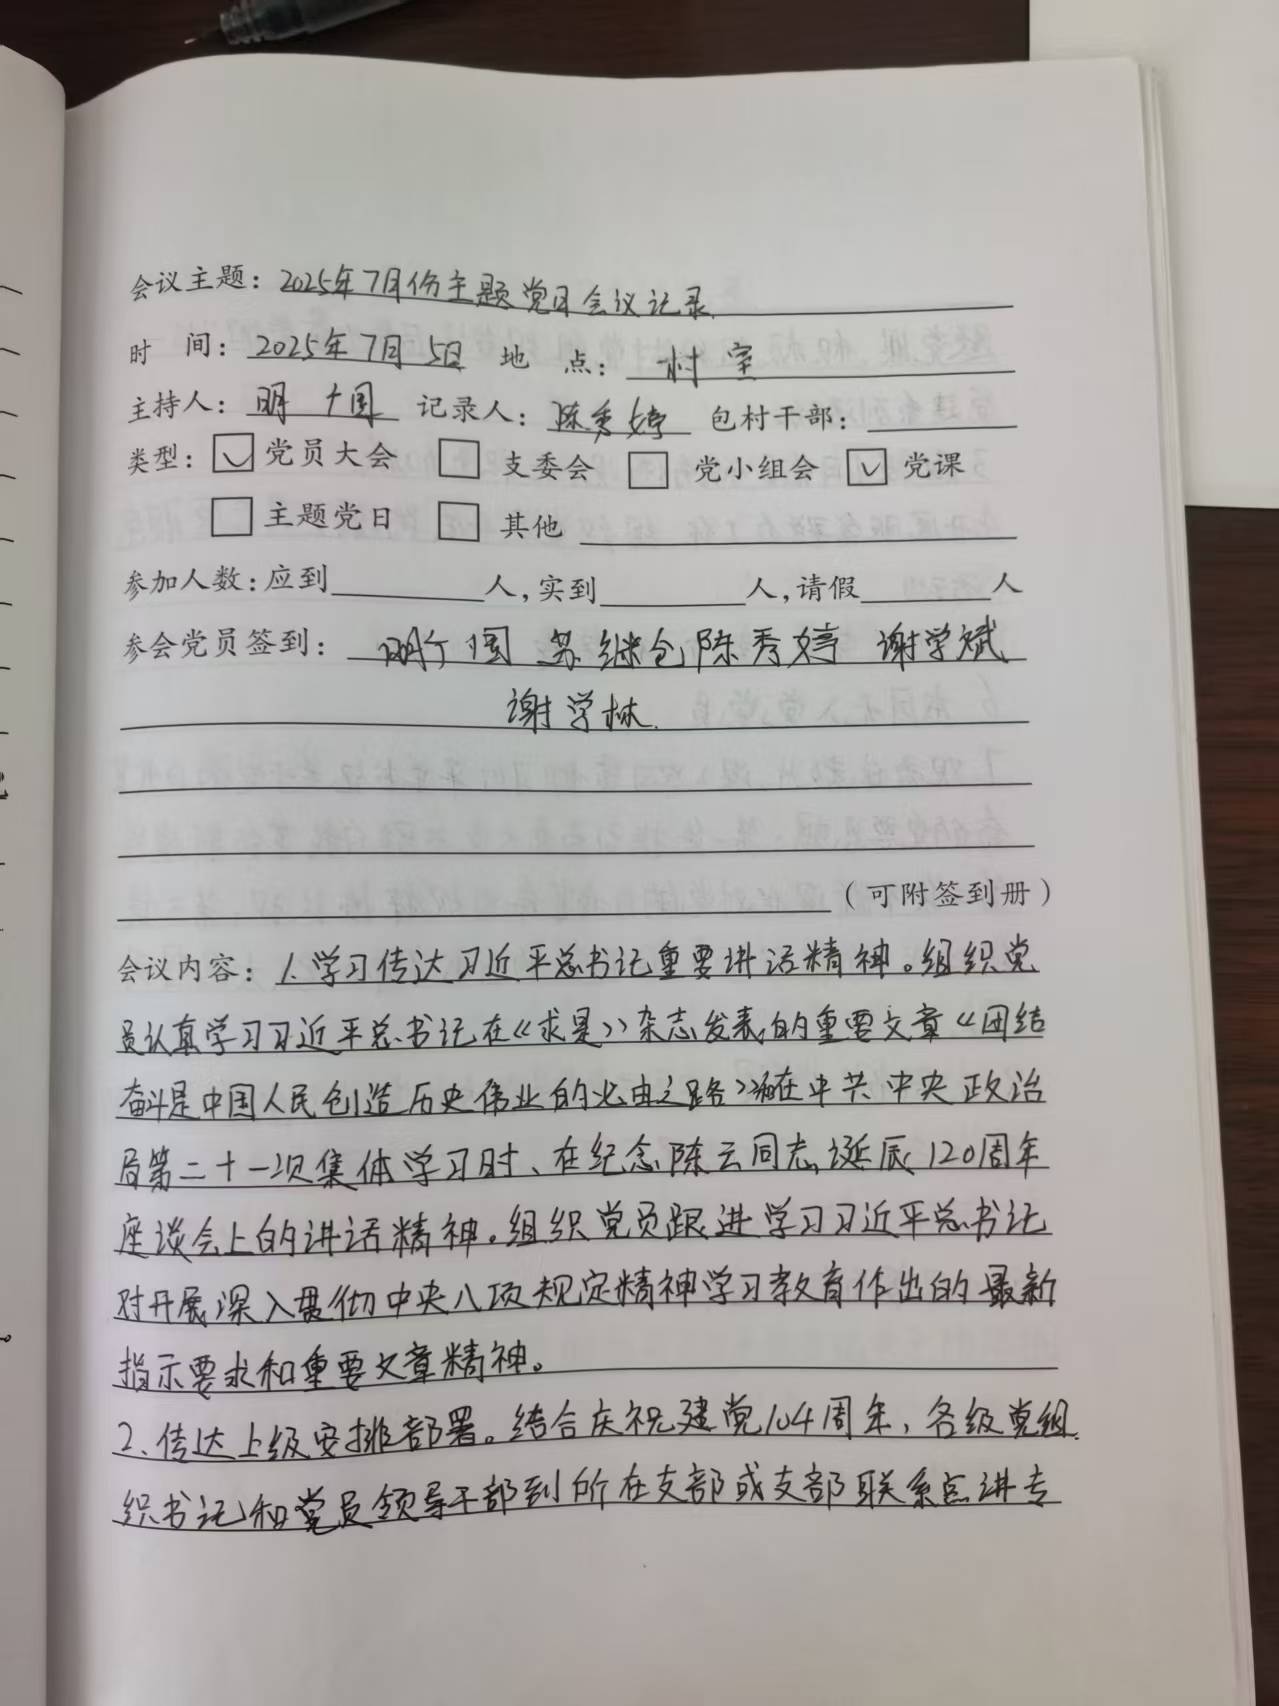 会议主题：2025年7月份主题党日会议记录
时 间：2025年7月5日 地 点：村室
主持人：明 国 记录人：陈秀婷 包村干部：
类型： 党员大会 支委会 党小组会 党课
主题党日 其他
参加人数：应到 人，实到 人，请假 人
参会党员签到： 明 国 苏继仓 陈秀婷 谢学斌
谢学林
（可附签到册）
会议内容：1.学习传达习近平总书记重要讲话精神。组织党
员认真学习习近平总书记在《求是》杂志发表的重要文章《团结
奋斗是中国人民创造历史伟业的必由之路》在中共中央政治
局第二十一次集体学习时、在纪念陈云同志诞辰120周年
座谈会上的讲话精神。组织党员跟进学习习近平总书记
对开展深入贯彻中央八项规定精神学习教育作出的最新
指示要求和重要文章精神。
2、传达上级安排部署。结合庆祝建党104周年，各级党组
织书记和党员领导干部到所在支部或支部联系点讲专